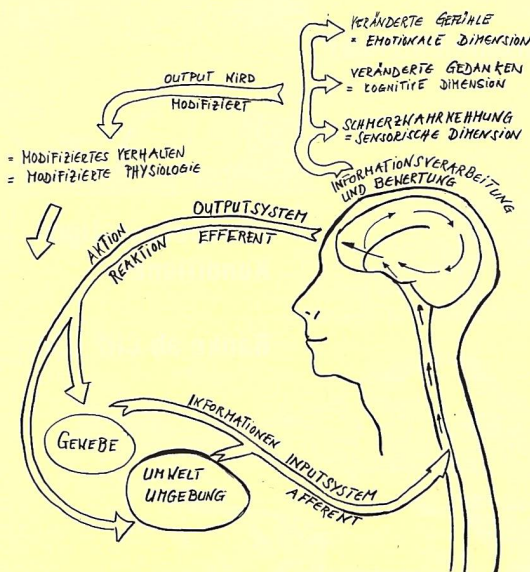 VERÄNDERTE GEFÜHLE
= EMOTIONALE DIMENSION
VERÄNDERTE GEDANKEN
= KOGNITIVE DIMENSION
SCHMERZWAHRNEHMUNG
= SENSORISCHE DIMENSION
OUTPUT WIRD
MODIFIZIERT
= MODIFIZIERTES VERHALTEN
= MODIFIZIERTE PHYSIOLOGIE
INFORMATIONSVERARBEITUNG
UND BEWERTUNG
OUTPUTSYSTEM
EFFERENT
AKTION
REAKTION
INFORMATIONEN
INPUTSYSTEM
AFFERENT
GEWEBE
UMWELT
UMGEBUNG